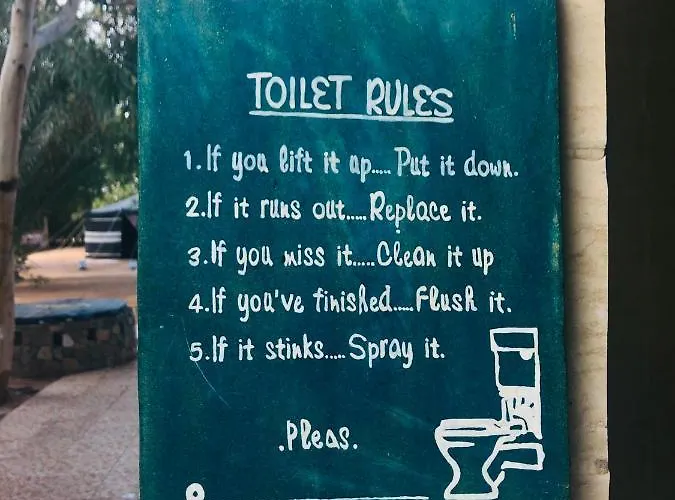 TOILET RULES
1.If you lift it up.....Put it down.
2.If it runs out.....Replace it.
3.If you miss it.....Clean it up
4.If you've finished....Flush it.
5.If it stinks.....Spray it.
.Pleas.